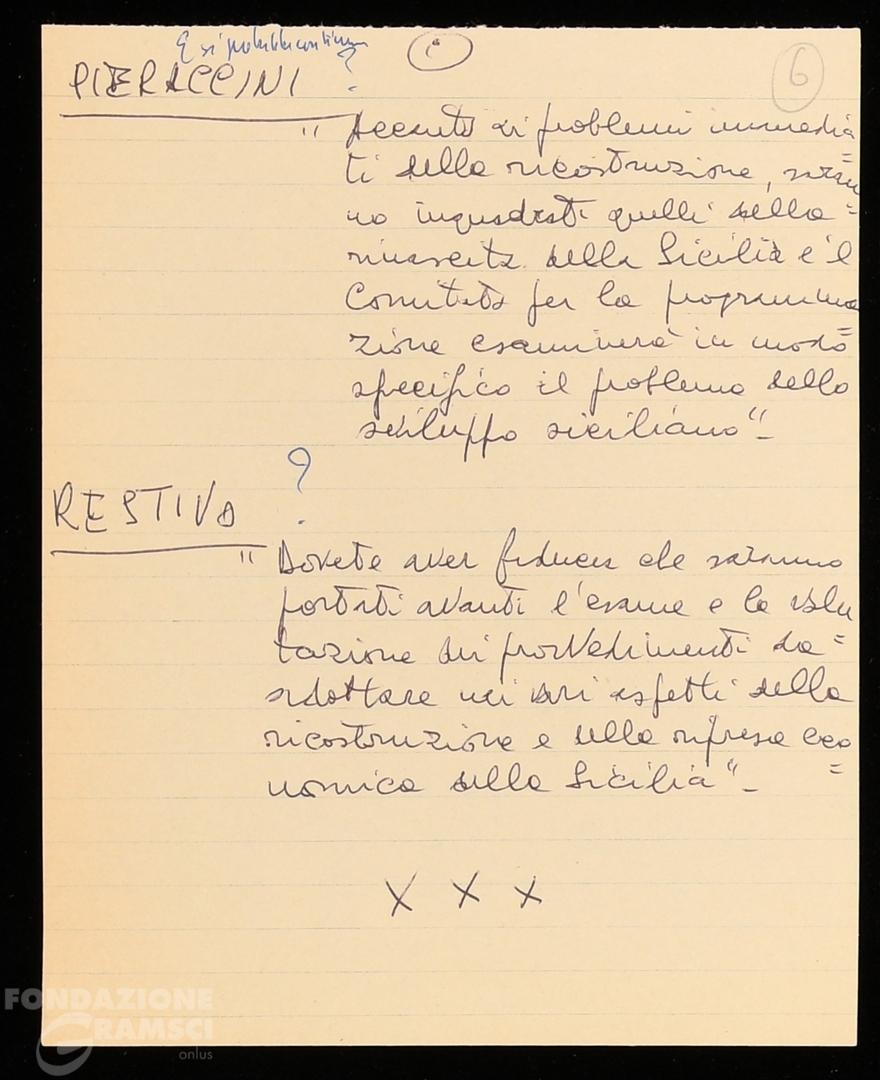 E si potrebbe continuare
6
PIERACCINI ?
" Accanto ai problemi immedia=
ti della ricostruzione, saran=
no inquadrati quelli della
rinascita della Sicilia e il
Comitato per la programma=
zione esaminerà in modo
specifico il problema dello
sviluppo siciliano"-
?
RESTIVO
" Dovete aver fiducia che saranno
portati avanti l'esame e la valu=
tazione dei provvedimenti da
adottare nei vari aspetti della
ricostruzione e della ripresa eco=
nomica della Sicilia"-
X X X
FONDAZIONE
GRAMSCI
onlus